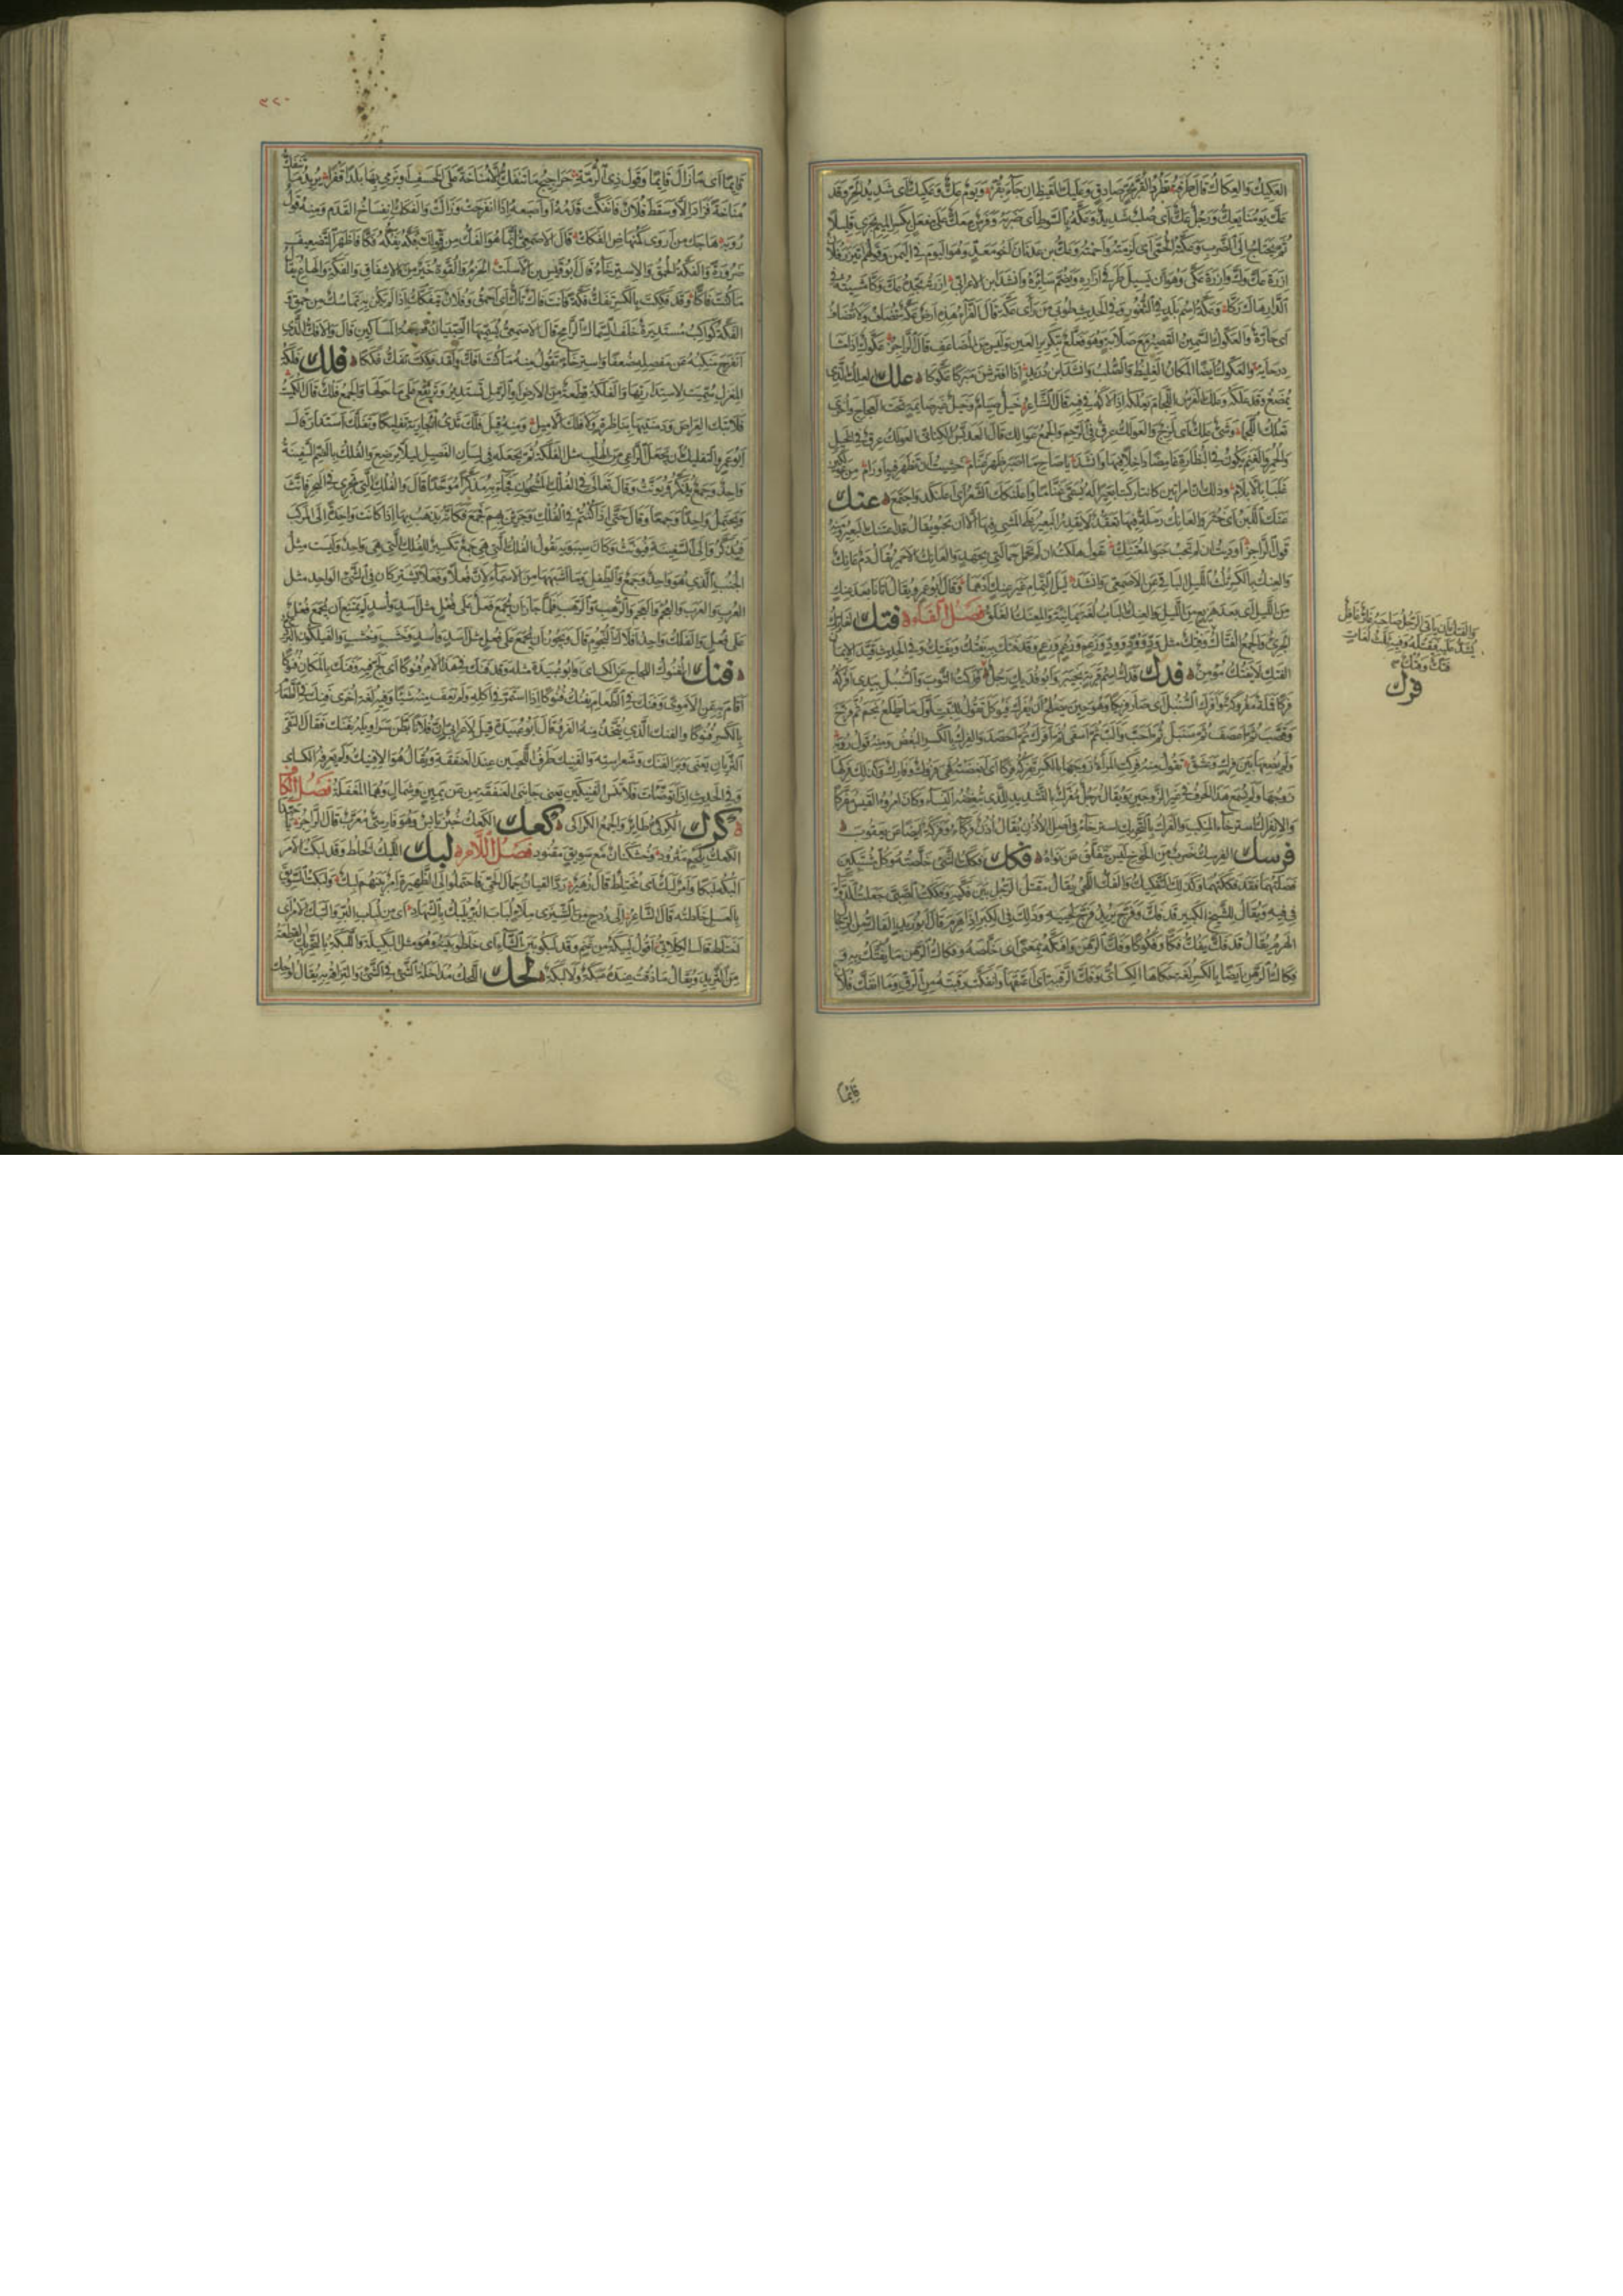 العكيك والعكاك قال طرفة تطرد القر بحر صادق وعكيك القيظ ان جاء بقر ويوم عك وعكيك اى شديد الحر وقد
عك يومنا يعك ورجل عك اى صلب شديد وعكه بالسوط اى ضربه وفرس معك على مفعل بكسر الميم يجرى قليلا
ثم يحتاج الى الضرب وعكته الحمى اى لزمته واحمته وعك بن عدنان اخو معد وهو اليوم فى اليمن وقولهم ائتزر فلان
ازرة عك وك وازرة عكى وهو ان يسبل طرفى ازاره ويضم سائره وانشد ابن الاعرابى ازرته تجده عك وكا مشيته فى
الدار هاك ركا وعكة اسم بلد فى الثغور وفى الحديث طوبى من رأى عكة قال الفراء هذه ارض عكة تضاف ولا تضاف
اى حارة والعكوك السمين القصير مع صلابة وهو فعلع بتكرير العين وليس من المضاعف قال الراجز عكوك اذا مشا
درحاية والعكوك ايضا المكان الغليظ الصلب وانشد ابن دريد اذا افترشن مبركا عكوكا علك العلك الذى
يمضغ وقد علكه وعلك الفرس اللجام يعلكه اذا لاكه فى فيه قال الشاعر خيل صيام وخيل غير صايمة تحت العجاج واخرى
تعلك اللجما وشئ علك اى لزج والعولك عرق فى الرحم والجمع عوالك قال العدبس الكنانى العولك عرق فى الخيل
والحمر والغنم يكون فى البظارة غامضا داخلا فيها وانشد يا صاح ما اصبر ظهر غنام خشيت ان تظهر فيه اورام من عولكين
غلبا بالابلام وذلك ان امراتين كانتا ركبتا بعيرا له يسمى غناما واعلنكك الشعر اى اعلنكد واجتمع عنك
عنك اللبن اى خثر والعانك رملة فيها تعقد لا يقدر البعير على المشى فيها الا ان يحبو يقال قد اعتنك البعير ومنه
قول الراجز اوديت ان لم تحب حبو المعتنك تقول هلكت ان لم تحمل حمالتى بجهد والعانك الاحمر يقال دم عانك
والعنك بالكسر ثلث الليل الباقى عن الاصمعى وانشد ليل التمام غير عنك ادهما وقال ابو عمرو يقال اتانا بعد عنك
من الليل اى بعد هزيع من الليل والعنك الباب لغة يمانية والمعنك الغلق فصل الفاء فتك الفاتك
الجرئ والجمع الفتاك والفتك مثل ود وود وود وزعم وزعم وزعم وقد فتك به يفتك ويفتك وفى الحديث قيد الايمان
الفتك لا يفتك مؤمن فدك فدك اسم قرية بخيبر وابو فديك رجل فرك فركت الثوب والسنبل بيدى افركه
فركا فتلة مفروكة وافرك السنبل اى صار فريكا وهو حين يصلح ان يفرك فيوكل تقول للنبت اول ما يطلع نجم ثم فرخ
وقصب ثم اعصف ثم سنبل ثم احب والب ثم اسفى ثم افرك ثم احصد والفرك بالكسر البغض ومنه قول روبة
ولم يضعها بين فرك وعشق تقول منه فركت المراة زوجها بالكسر تفركه فركا اى ابغضته فهى فروك وفارك وكذلك فركها
زوجها ولم يسمع هذا الحرف فى غير الزوجين ويقال رجل مفرك بالتشديد للذى تبغضه النساء وكان امرؤ القيس مفركا
والانفراك استرخاء المنكب والفرك بالتحريك استرخاء فى اصل الاذن يقال اذن فركاء وفركة ايضا عن يعقوب
فرسك الفرسك ضرب من الخوخ ليس يتفلق عن نواه فكك فككت الشئ خلصته وكل شيئين
فصلتهما فقد فككتهما وكذلك التفكيك والفك اللحى يقال مقتل الرجل بين فكيه وفككت الصبى جعلت الدواء
فى فيه ويقال للشيخ الكبير قد فك وفرج يريد فرج لحييه وذلك فى الكبر اذا هرم قال ابو زيد الفاك المسن
الهرم يقال قد فك يفك فكا وفكوكا وفك الرهن وافتكه بمعنى اى خلصه وفكاك الرهن ما يفتك به و
فكاك الرهن ايضا بالكسر لغة حكاها الكسائى وفك الرقبة اى اعتقها وانفكت رقبته من الرق وما انفك فلان
قايما
والفتك ان ياتى الرجل صاحبه وهو غار غافل
يشد عليه فيقتله وفيه ثلث لغات
فتك وفتك
فرك
٣٢٠
قايما اى ما زال قايما وقول ذى الرمة حراجيج ما تنفك الا مناخة على الخسف او ترمى بها بلدا قفرا يريد ما تنفك
مناخة فزاد الا وسقط فلان فانفكت قدمه او اصبعه اذا انفرجت وزالت والفكك انفساخ القدم ومنه قول
روبة هاجك من اروى كمنهاض الفكك قال الاصمعى انما هو الفك من قولك فكه يفكه فكا فاظهر التضعيف
ضرورة والفكة الحمق والاسترخاء قال ابو قيس بن الاسلت الحزم والقوة خير من الاشفاق والفكة والهاع يقال
ما كنت فاكا وقد فككت بالكسر تفك فكة فانت فاك تاك اى احمق وفلان يتفكك اذا لم يكن به تماسك من حمق و
الفكة كواكب مستديرة خلف السماك الرامح قال الاصمعى يسميها الصبيان قصعة المساكين قال والافك الذى
انفرج منكبه عن مفصله ضعفا واسترخاء تقول منه ما كنت افك ولقد فككت تفك فككا فلك فلكة
المغزل سميت لاستدارتها والفلكة قطعة من الارض او الرمل تستدير وترتفع على ما حولها والجمع فلك قال الكميت
فلا تبك العراص ودمنتيها بناظرة ولا فلك الاميل ومنه قيل فلك ثدى الجارية تفليكا وتفلك استدار قال
ابو عمرو التفليك ان يجعل الراعى من الهلب مثل الفلكة ثم يجعله فى لسان الفصيل ليلا يرضع والفلك بالضم السفينة
واحد وجمع يذكر ويونث وقال تعالى فى الفلك المشحون فجاء به مذكرا موحدا قال والفلك التى تجرى فى البحر فانث
ويحتمل واحدا وجمعا وقال حتى اذا كنتم فى الفلك وجرين بهم فجمع فكانه يذهب بها اذا كانت واحدة الى المركب
فيذكر والى السفينة فيونث وكان سيبويه يقول الفلك التى هى جمع تكسير للفلك التى هى واحد وليست مثل
الجنب الذى هو واحد وجمع والطفل وما اشبههما من الاسماء لان فعلا وفعلا يشتركان فى الشئ الواحد مثل
العرب والعرب والعجم والعجم والرهب والرهب فلما جاز ان يجمع فعل على فعل مثل اسد واسد لم يمتنع ان يجمع فعل
على فعل والفلك واحد افلاك النجوم قال ويجوز ان يجمع على فعل مثل اسد واسد وخشب وخشب والفيلكون البردى
فنك الفنوك اللجاج عن الكسائى وابو عبيدة مثله وقد فنك فى هذا الامر فنوكا اى لج فيه وفنك بالمكان فنوكا
اقام به عن الاموى وفنك فى الطعام يفنك فنوكا اذا استمر فى اكله ولم يعف منه شيئا وفيه لغة اخرى فنك فى الطعام
بالكسر فنوكا والفنك الذى يتخذ منه الفرو قال ابو عبيد قيل لاعرابى ان فلانا بطن سراويله بفنك فقال التقى
الثريان يعنى وبر الفنك وشعر استه والفنيك طرف اللحيين عند العنفقة ويقال هو الافنيك ولم يعرفه الكسائى
وفى الحديث اذا توضات فلا تنس الفنيكين يعنى جانبى العنفقة من عن يمين وشمال وهما المغفلة فصل الكاف
كرك الكركى طائر والجمع الكراكى كعك الكعك خبز يابس وهو فارسى معرب قال الراجز يا حبذا
الكعك بلحم مثرود وخشكنان مع سويق مقنود فصل اللام لبك اللبك الخلط وقد لبكت الامر
البكه لبكا وامر لبك اى مختلط قال زهير رد القيان جمال الحى فاحتملوا الى الظهيرة امر بينهم لبك ولبكت السويق
بالعسل خلطته قال الشاعر الى ردح من الشيزى ملاء لباب البر يلبك بالشهاد اى من لباب البر والتبك الامر اى
اختلط قال الكلابى اقول لبيكة من غنم وقد لبكوا بين الشاء اى خلطوا بينه وهو مثل البكيلة واللبكة بالتحريك القطعة
من الثريد ويقال ما ذقت عنده عبكة ولا لبكة لحك اللحك مداخلة الشئ فى الشئ والتزاقه به يقال لوحك